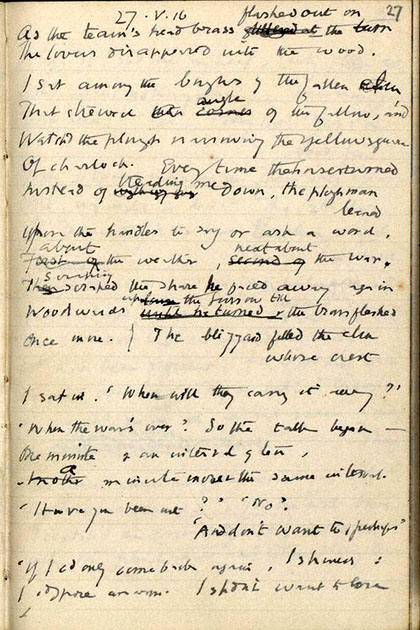 27
27.V.16 flashed out on
As the team's head brass glittered at the turn
The lovers disappeared into the wood.
I sat among the boughs of the fallen elm
angle
That strewed corner of the fallow, and
Watched the plough narrowing the yellow square
Of charlock. Every time the horses turned
treading
Instead of me down, the ploughman
leaned
Upon the handles to say or ask a word,
About next about
First of the weather, second of the war.
Scraping
Then scraped the share he faced away again
the furrow till
Woodwards until he turned & the brass flashed
Once more. } The blizzard felled the elm
whose crest
I sat in. 'When will they carry it away?'
'When the war's over'. So the talk began —
One minute & an interval of ten,
a
Another minute more & the same interval.
"Have you been out?" "No".
"And don't want to, perhaps"
"If I cd only come back again, I should:
I cd spare an arm. I shdn't want to lose